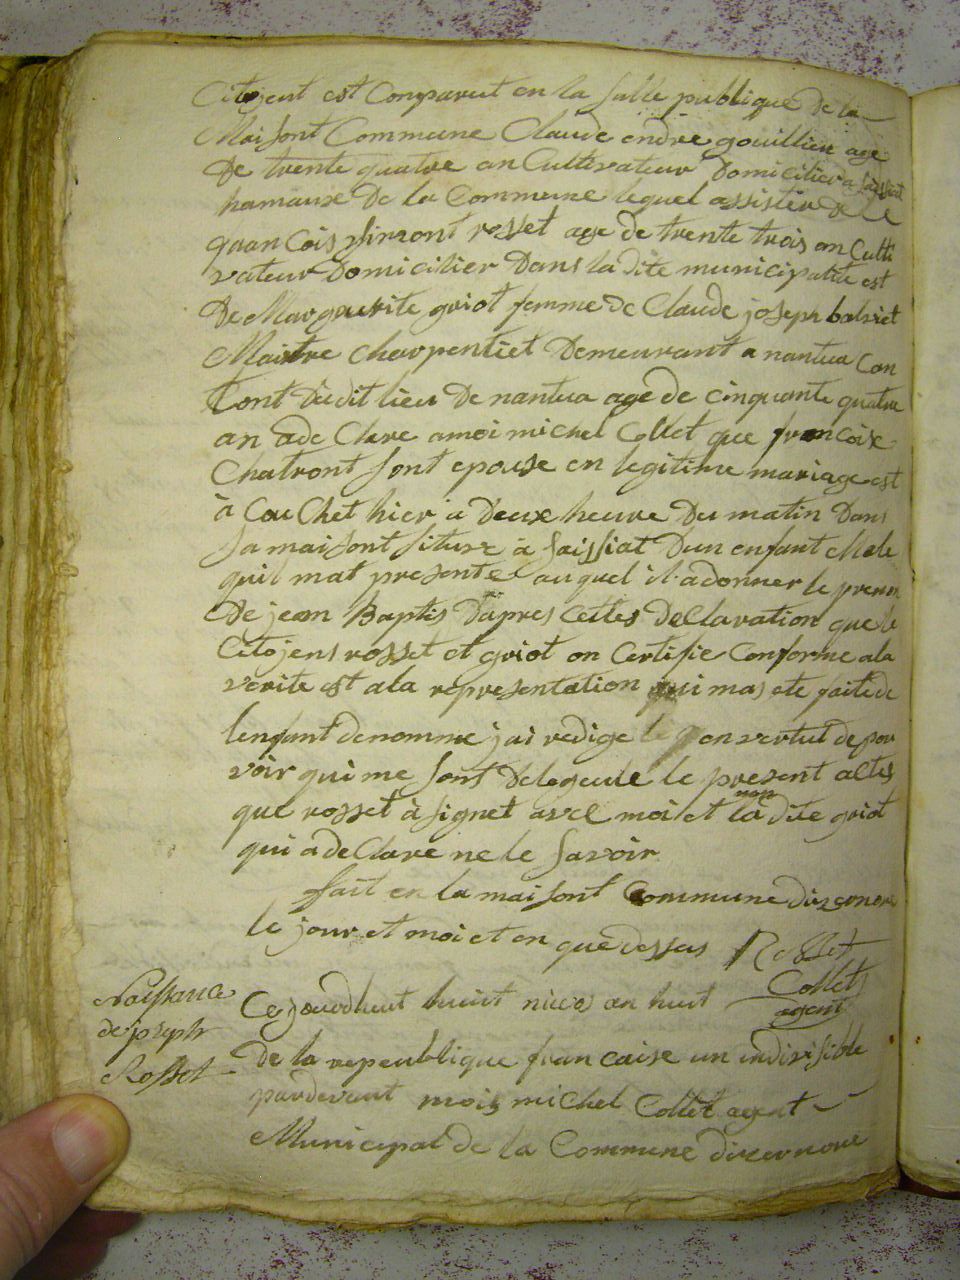 Citoyent est Comparut en la salle publique De la
Maisont Commune Claude endre gouillieu age
De trente quatre an Cultivateur Domicilier a
hamaux De la Commune lequel assister De
quan Cois rosset age de trente trois an Culti
vateur Domicilier Dans la dite municipalite est
De Marguerite griot femme de Claude joseph
Maitre charpentiet Demeurant a nantua Can
tont du dit lieu De nantua age de cinquante quatre
an a de Clare a moi michel Collet que francoise
Chatront sont epouse en legitime mariage est
à Cou Chet hier a Deux heure Du matin Dans
sa maisont situer à saissiat Dun enfant Male
quil mat presente auquel il a donner le prenom
De jean Baptis Dapres Cettes Declaration que le
Citoyens rosset et griot on Certifie Conforme a la
verite est a la representation qui mas ete faite de
lenfant denomme jai redige en vertut de pou
voir qui me sont Delegeule le present actes
que rosset à signet avec moi et non la dite griot
qui a de Clare ne le savoir
fait en la maisont Commune dizernore
le jour et moi et en que dessus Rosset
Collet
agent
Naissance
de joseph
Rosset
Ce jourdhuit huit nivos an huit
De la repeublique francaise un indivisible
pardevant mois michel Collet agent
Municipal de la Commune dizernore